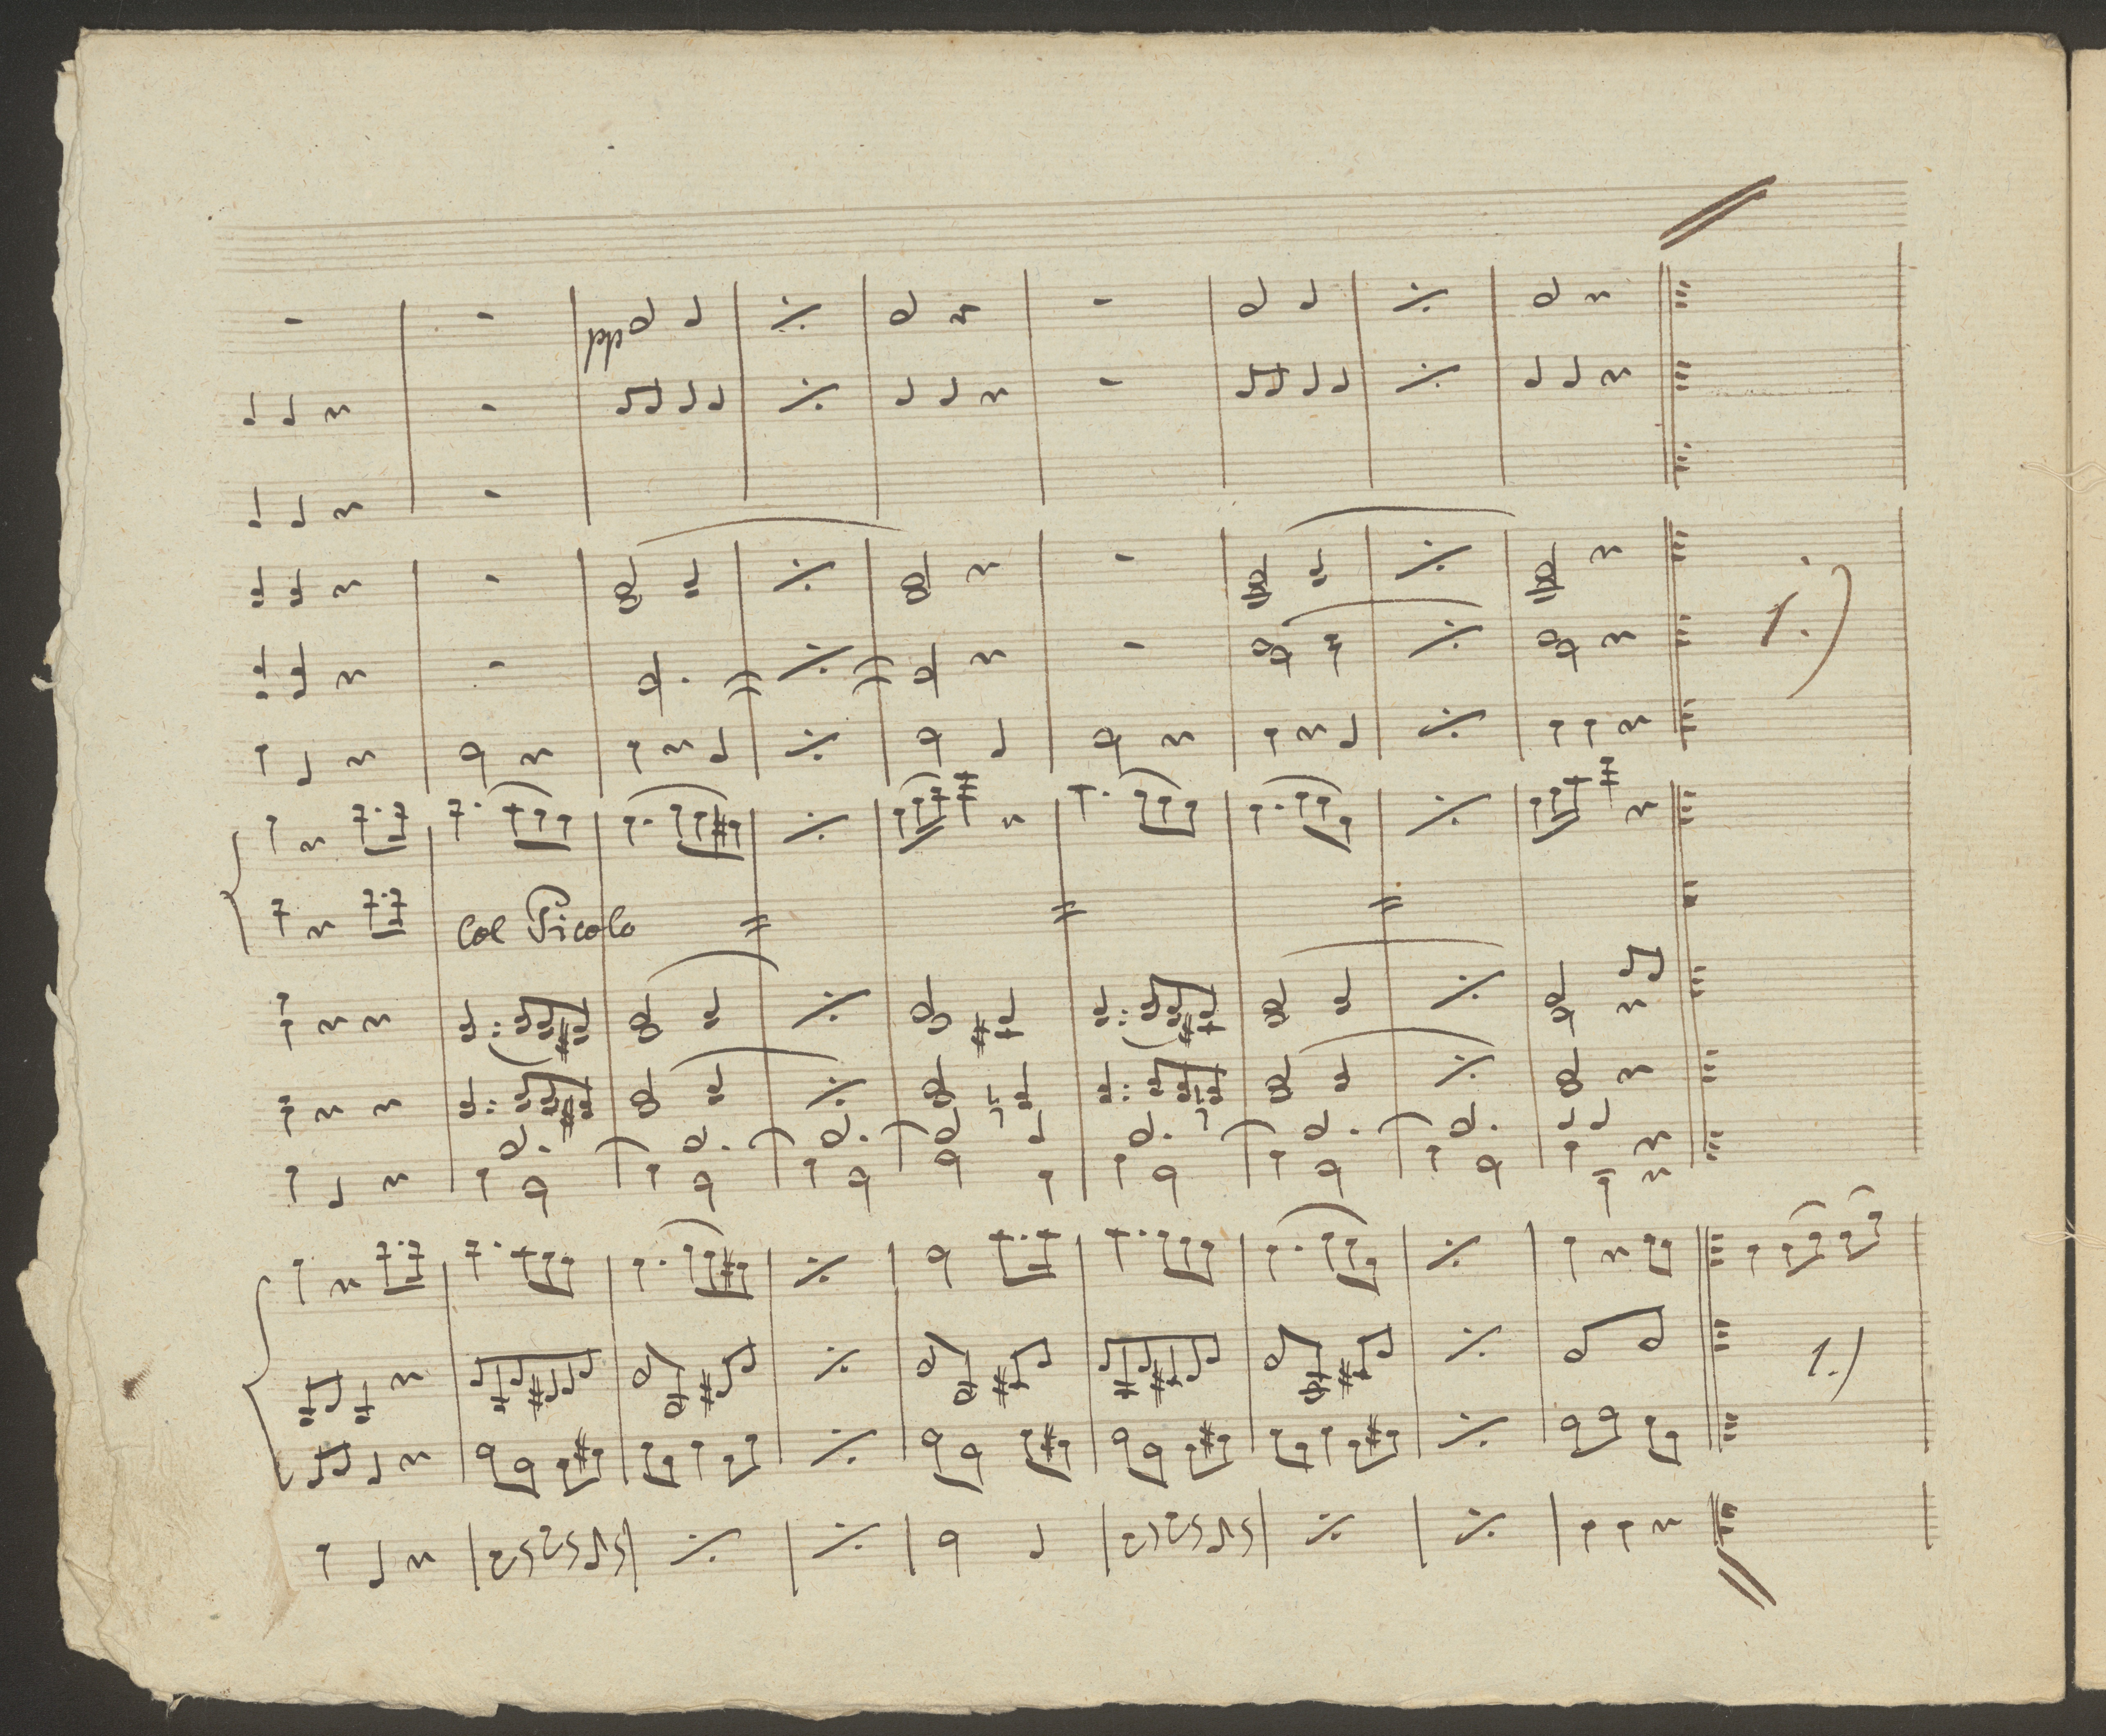 pp
1.)
Col Picolo
1.)